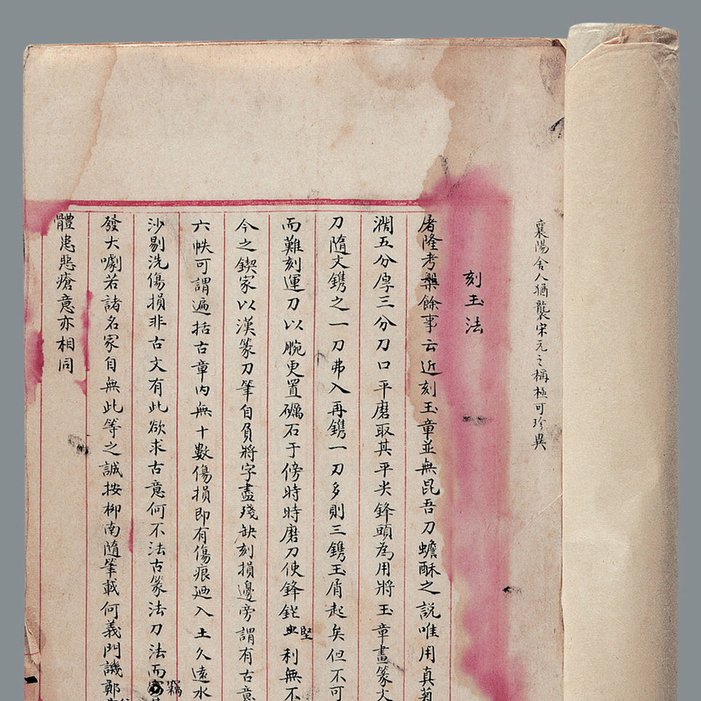 襄陽舍人猶襲宋元之稱極可珍異
刻玉法
屠隆考槃餘事云近刻玉章並無昆吾刀蟾酥之說唯用真菊
濶五分厚三分刀口平磨取其平尖鋒頭為用將玉章畫篆文
刀隨文鐫之一刀弗入再鐫一刀多則三鐫玉屑起矣但不可
而難刻運刀以腕更置礪石于傍時時磨刀使鋒鋩堅利無不
今之鍥家以漢篆刀筆自負將字畫殘缺刻損邊旁謂有古意
六帙可謂遍括古章內無十數傷損即有傷痕廼入土久遠水
沙剔洗傷損非古文有此欲求古意何不法古篆法刀法而竊
發大噱若諸名家自無此等之誠按柳南隨筆載何義門譏鄭
體患惡瘡意亦相同